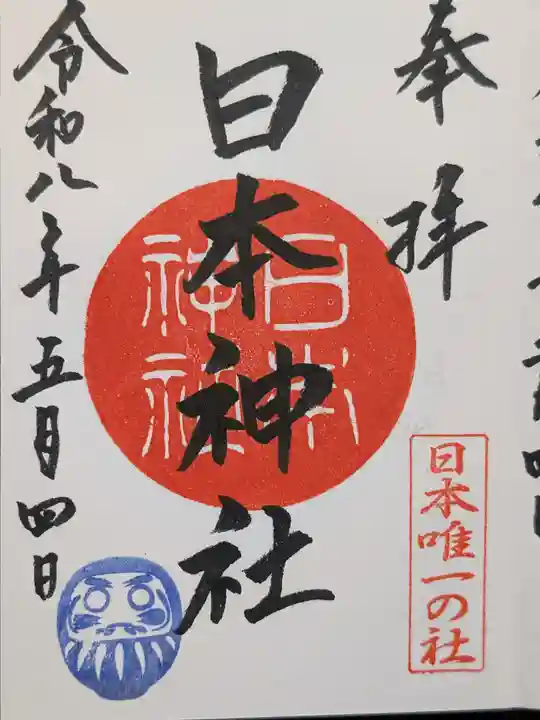 奉拝
日本唯一の社
日本神社
日本神社
令和八年五月四日